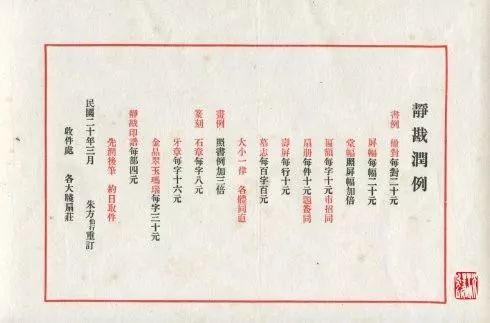 靜戡潤例
書例 楹對每對二十元
屏幅每幅二十元
堂幅照屏幅加倍
匾額每字十元市招同
扇册每件十元題簽同
壽屏每行十元
墓志每百字百元
大小一律 各體同直
畫例 照書例加三倍
篆刻 石章每字八元
牙章每字十六元
金晶翠玉瑪瑙每字三十元
靜戡印譜每部四元
先潤後筆 約日取件
民國二十年三月 朱方重訂
收件處 各大牋扇莊